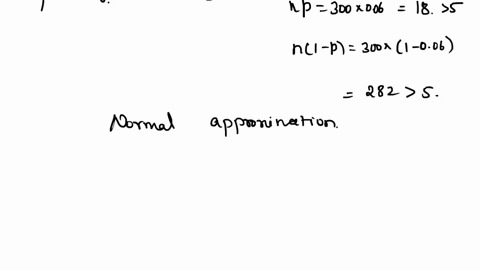 np = 300 × 006 = 18. > 5
n(1-p) = 300 × (1-0.06)
= 282 > 5.
Normal approximination.